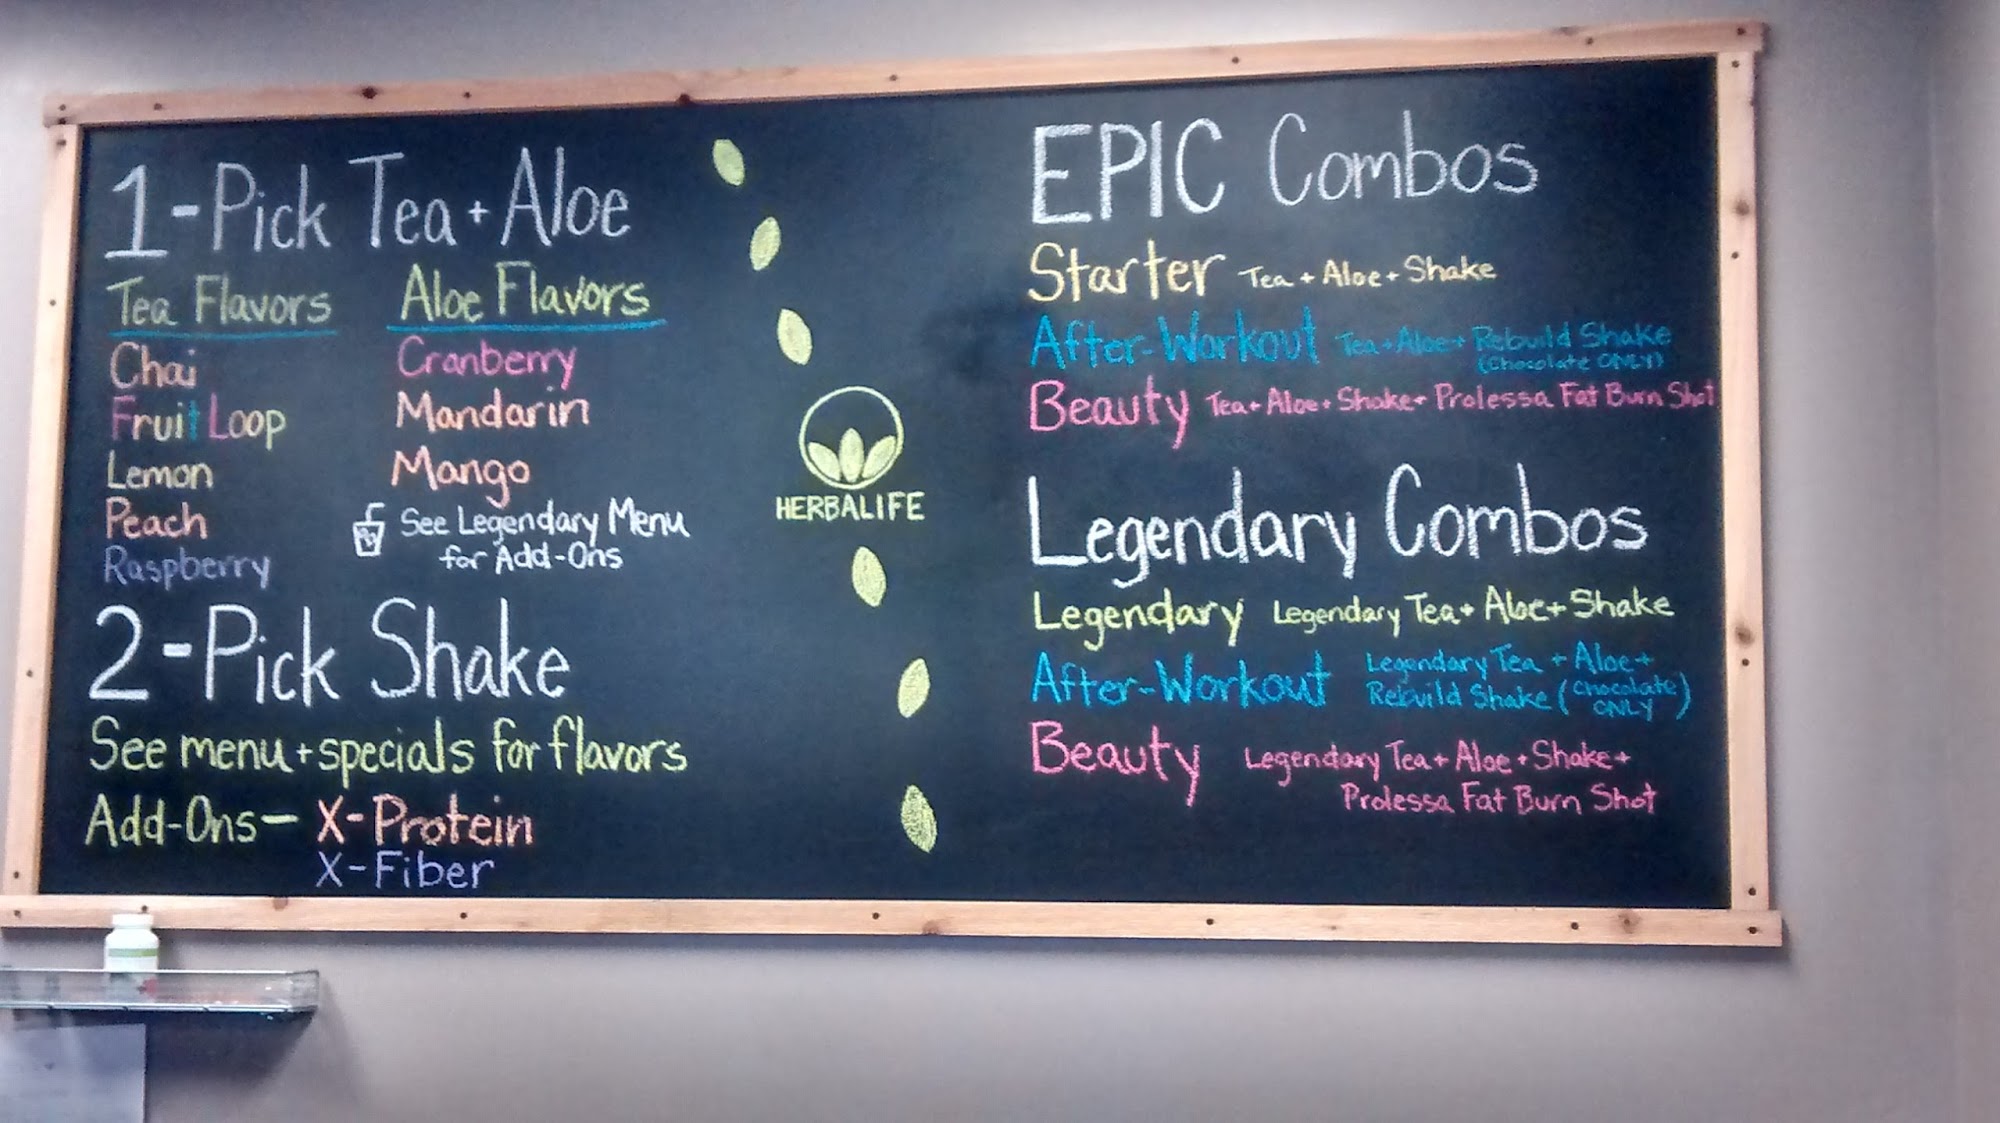 1-Pick Tea + Aloe
Tea Flavors
Chai
Fruit Loop
Lemon
Peach
Raspberry
Aloe Flavors
Cranberry
Mandarin
Mango
See Legendary Menu
for Add-Ons
2-Pick Shake
See menu + specials for flavors
Add-Ons— X-Protein
X-Fiber
HERBALIFE
EPIC Combos
Starter Tea + Aloe + Shake
After-Workout Tea + Aloe + Rebuild Shake
(Chocolate ONLY)
Beauty Tea + Aloe + Shake + Prolessa Fat Burn Shot
Legendary Combos
Legendary Legendary Tea + Aloe + Shake
After-Workout Legendary Tea + Aloe +
Rebuild Shake (Chocolate ONLY)
Beauty Legendary Tea + Aloe + Shake +
Prolessa Fat Burn Shot